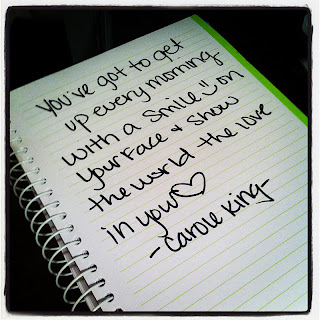 you've got to get
up every morning
with a smile :) on
your face & show
the world the love
in your ♡
-Carole King-